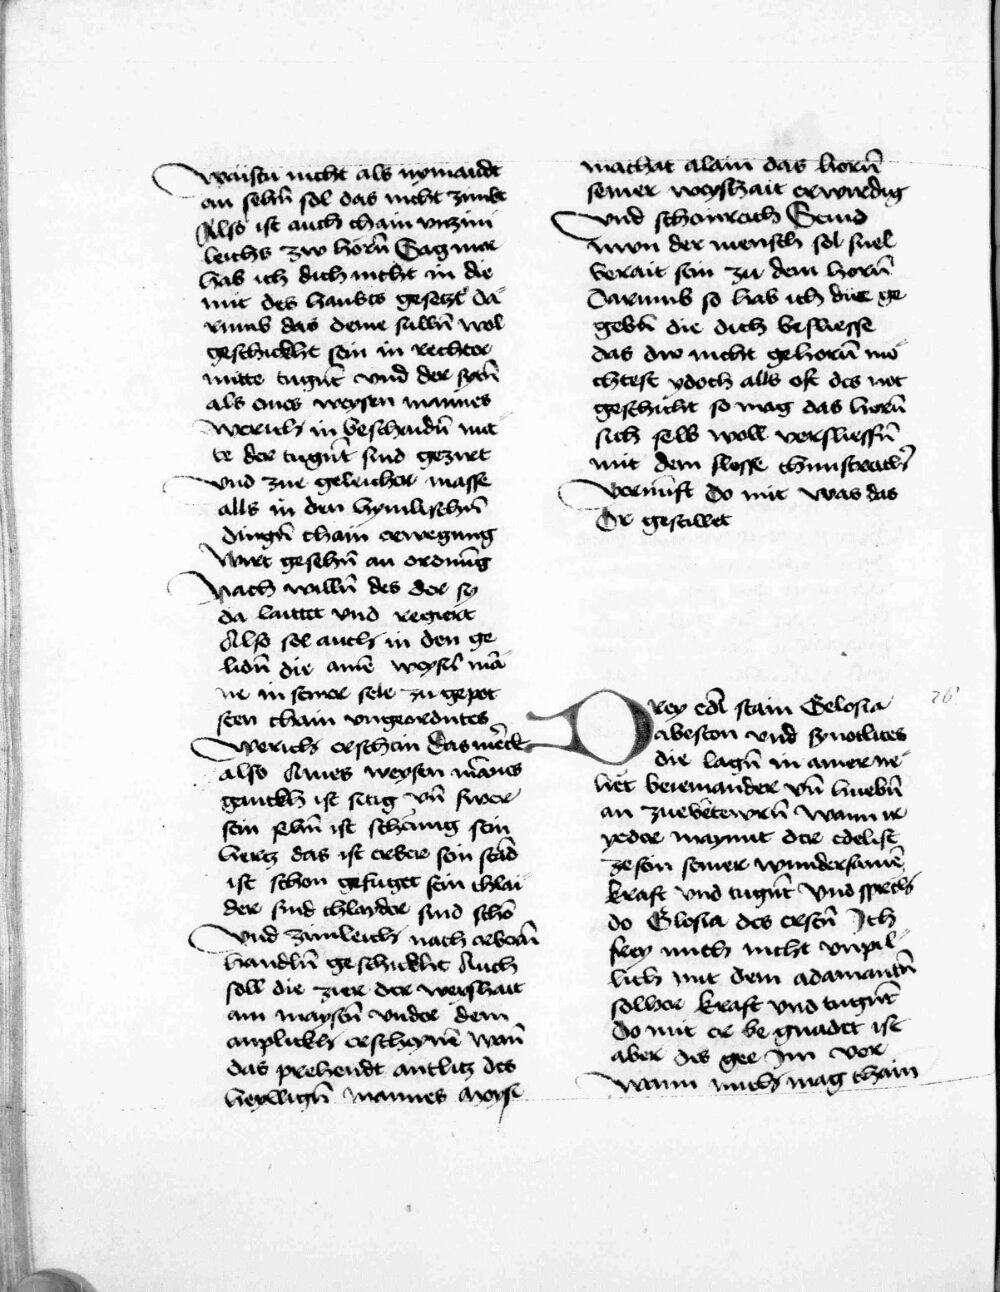 waisen nicht als nymandt
an sehn̄ sol das nicht zimbt
Also ist auch chain vnzim̄
leichs zw horn̄ Sag mer
hab ich dich nicht in die
mit des haubts gesetzt da
rumb das deine sillen̄ wol
geschickht sein in rechter
mitte tugn̄t vnd der syn̄
als eines weysen mannes
werich in beschaidn̄ mit
te der tugn̄t sind gezirt
vnd zue geleicher masse
alls in den hymlischn̄
dingn̄ chain erwegung
wirt gesehn̄ an ordnūg
nach willn̄ des der sy
da laittet vnd regiert
Also sol auch in den ge
lidn̄ die ainē weysē mā
ne in seiner sele zu gepot
sten chain vngeordntes
werich erschein Das mērck
also Aines weysen mānes
gauckh ist sitig vn̄ swer
sein sehn̄ ist schāmig sein
hertz das ist erber sein stād
ist schon gefuget sein chlai
der sind chlayder sind schō
vnd zimleich nach erbern̄
handln̄ geschickht Auch
soll die zier der weyshait
am maystn̄ vnder dem
anplickh erscheynē wan̄
das prehendt antlitz des
heyllign̄ mannes Moyse
machat alain das horn̄
seiner weyshait erwirdig
vnd schonreich Seind
nwn der mensch sol snel
berait sein zu dem horn̄
Darumb so hab ich dir ge
gebn̄ die dich besliesse
das dw nicht gehorn̄ mo
chtest ydoch alls oft des not
geschicht so mag das horn̄
sich selb woll versliessn̄
mit dem slosse chunstreich̄
vernūft Do mit was das
Or gestillet
Drey edl stain Celosia
abeston vnd synotites
die lagn̄ in ainer ne
liet beieinander vn̄ huebn̄
an zuebētewrn̄ wann ir
yeder maynnt der edelist
zesein seiner wundersamē
kraft vnd tugn̄t vnd sprich
do Elosia des erstn̄ Ich
frey mich nicht vnpil
lich mit dem adamantn̄
solher kraft vnd tugn̄t
do mit er be gnadet ist
aber des gee Im vor
wann mich mag chain
26